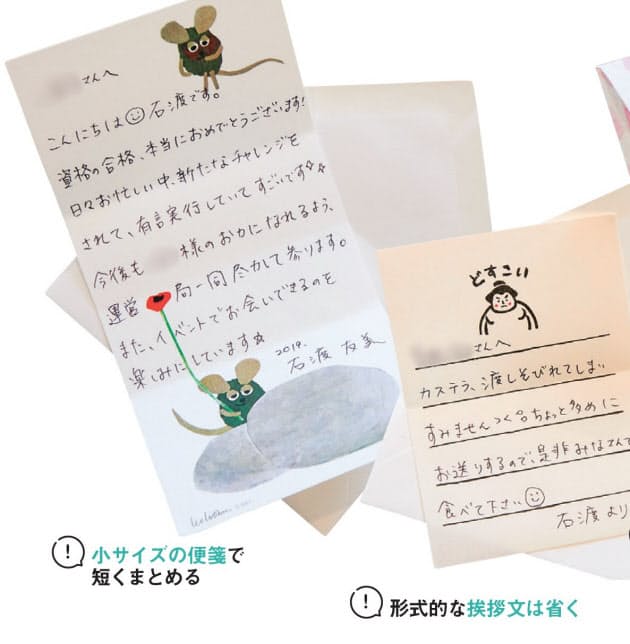 さんへ
こんにちは 石渡です。
資格の合格、本当におめでとうございます!
日々お忙しい中、新たなチャレンジを
されて、有言実行していてすごいです☆☆
今後も 様のお力になれるよう、
運営 局一同尽力して参ります。
また、イベントでお会いできるのを
楽しみにしています☆
2019.
石渡 友美
どすこい
さんへ
カステラ、渡しそびれてしまい
すみません つく。ちょっと多めに
お送りするので、是非みなさんで
食べて下さい
石渡より
! 小サイズの便箋で
短くまとめる
! 形式的な挨拶文は省く